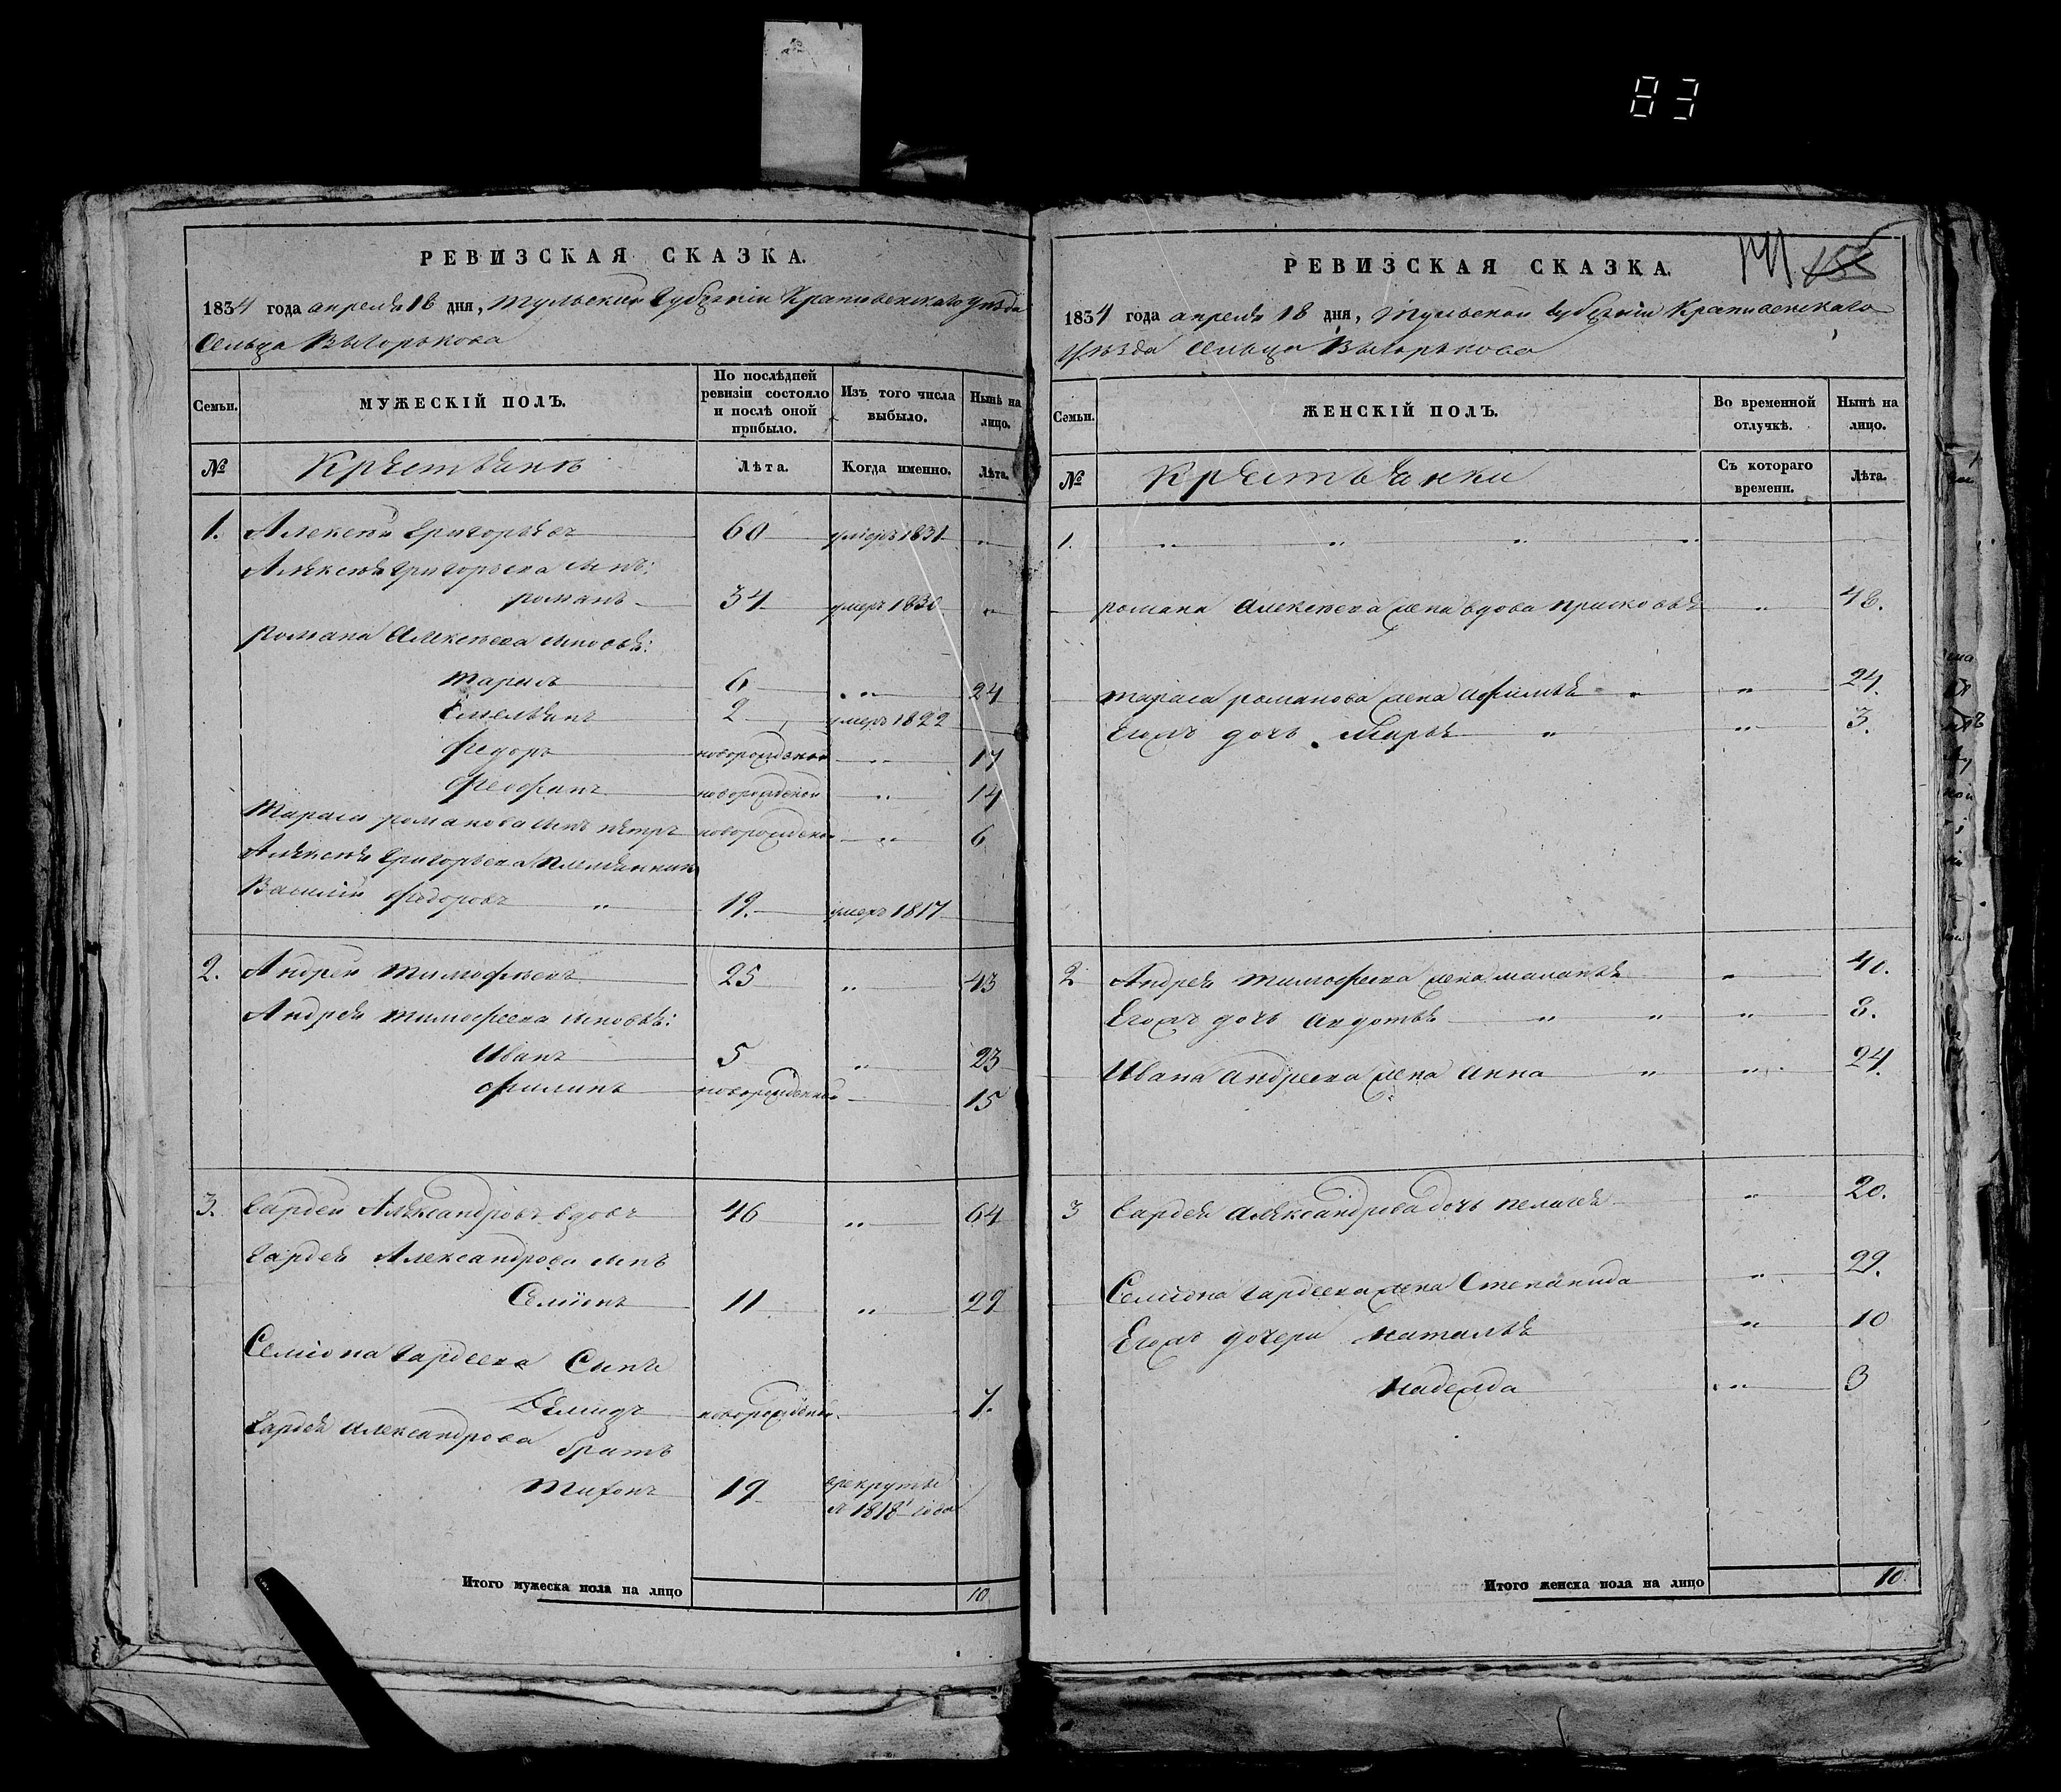 83
РЕВИЗСКАЯ СКАЗКА.
1834 года апреля 18 дня, Тульской Губернии Крапивенскаго Уезда
Сельца Выгорькова
Семьи.
МУЖЕСКІЙ ПОЛЪ.
По послѣдней ревизіи состояло и послѣ оной прибыло.
Изъ того числа выбыло.
Нынѣ на лицо.
№
Крестьянъ
Лѣта.
Когда именно.
Лѣта.
1. Алексей Григорьевъ 60 умеръ 1831 "
Алексея Григорьева сынъ:
романъ 34 умеръ 1830 "
романа Алексеева сыновья:
Тарасъ 6 " 24
Емельянъ 2 умеръ 1822
Федоръ новорожденной " 17
Феофанъ новорожденной " 14
Тараса романова сынъ петръ новорожденной " 6
Алексея Григорьева племянникъ
Василий Федоровъ " 19. умеръ 1817
2. Андрей Тимофеевъ 25 " 43
Андрея Тимофеева сыновья:
Иванъ 5 " 23
Филипъ новорожденной 15
3. Гардей Александровъ вдовъ 46 " 64
Гардея Александрова сынъ
Семионъ 11 " 29
Семиона Гардеева Сынъ
Демидъ новорожденной 7.
Гардея Александрова братъ
Тихонъ 19 врекруты
1818 года
Итого мужеска пола на лицо 10
155
РЕВИЗСКАЯ СКАЗКА.
1834 года апреля 18 дня, Тульской Губернии Крапивенскаго
Уезда Сельца Выгорькова
Семьи.
ЖЕНСКІЙ ПОЛЪ.
Во временной отлучкѣ.
Нынѣ на лицо.
№
Крестьянки
Съ котораго времени.
Лѣта.
1. " " " "
романа Алексеева жена вдова прасковья " 48.
Тараса романова жена Афимья " " 24.
Егожъ дочь Марья " " 3.
2 Андрея Тимофеева жена маланья " 40.
Егожъ дочь Авдотья " " " 8.
Ивана Андреева жена Анна " " 24.
3 Гардея Александрова дочь пелагея " 20.
Семиона Гардеева жена Степанида " 29.
Егожъ дочери наталья " 10
надежда " 3
Итого женска пола на лицо 10